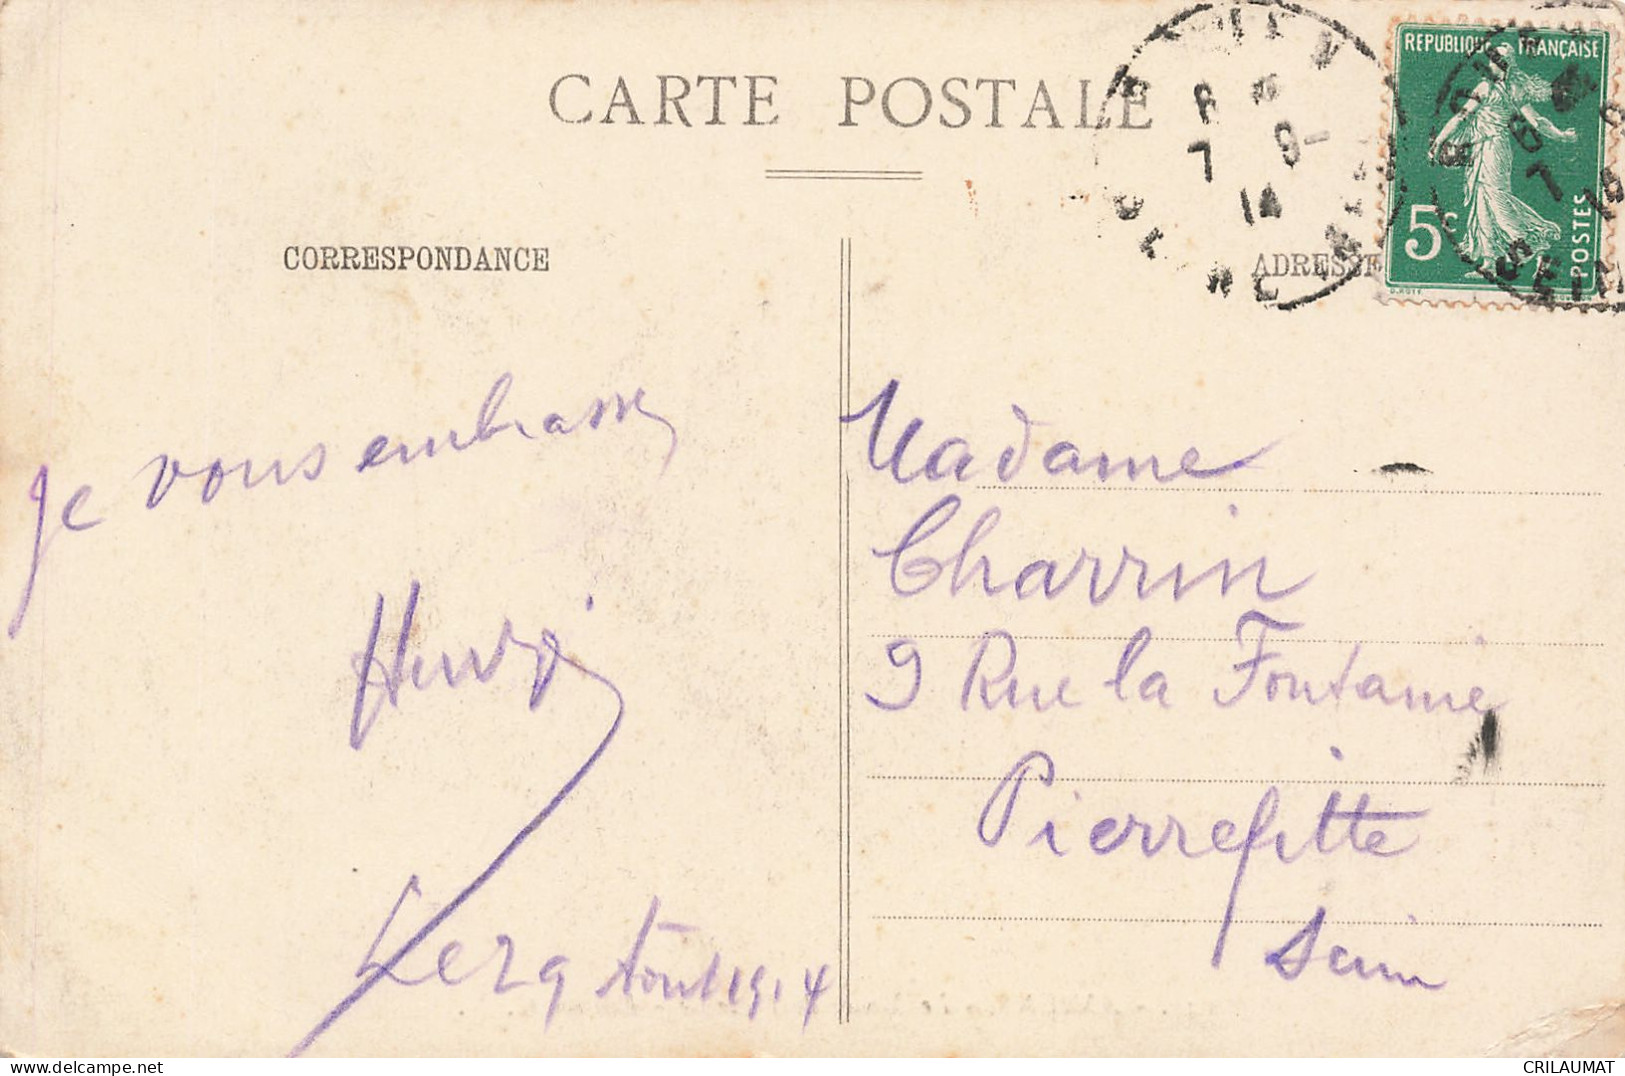 CARTE POSTALE
CORRESPONDANCE
ADRESSE
REPUBLIQUE FRANÇAISE
5c
POSTES
7
14
je vous embrasse
Le 29 Août 1914
Madame
Charrin
9 Rue la Fontaine
Pierrefitte
Seine
CRILAUMAT